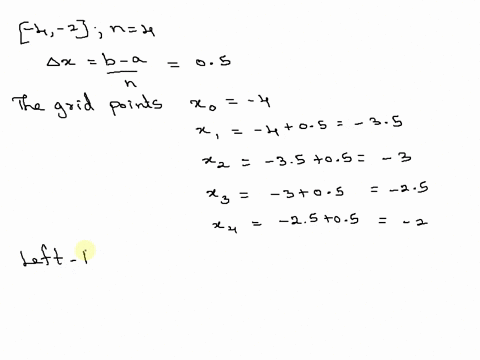 [-4, -2]; n=4
Δx = b-a/n = 0.5
The grid points x₀ = -4
x₁ = -4+0.5 = -3.5
x₂ = -3.5+0.5 = -3
x₃ = -3+0.5 = -2.5
x₄ = -2.5+0.5 = -2
Left -